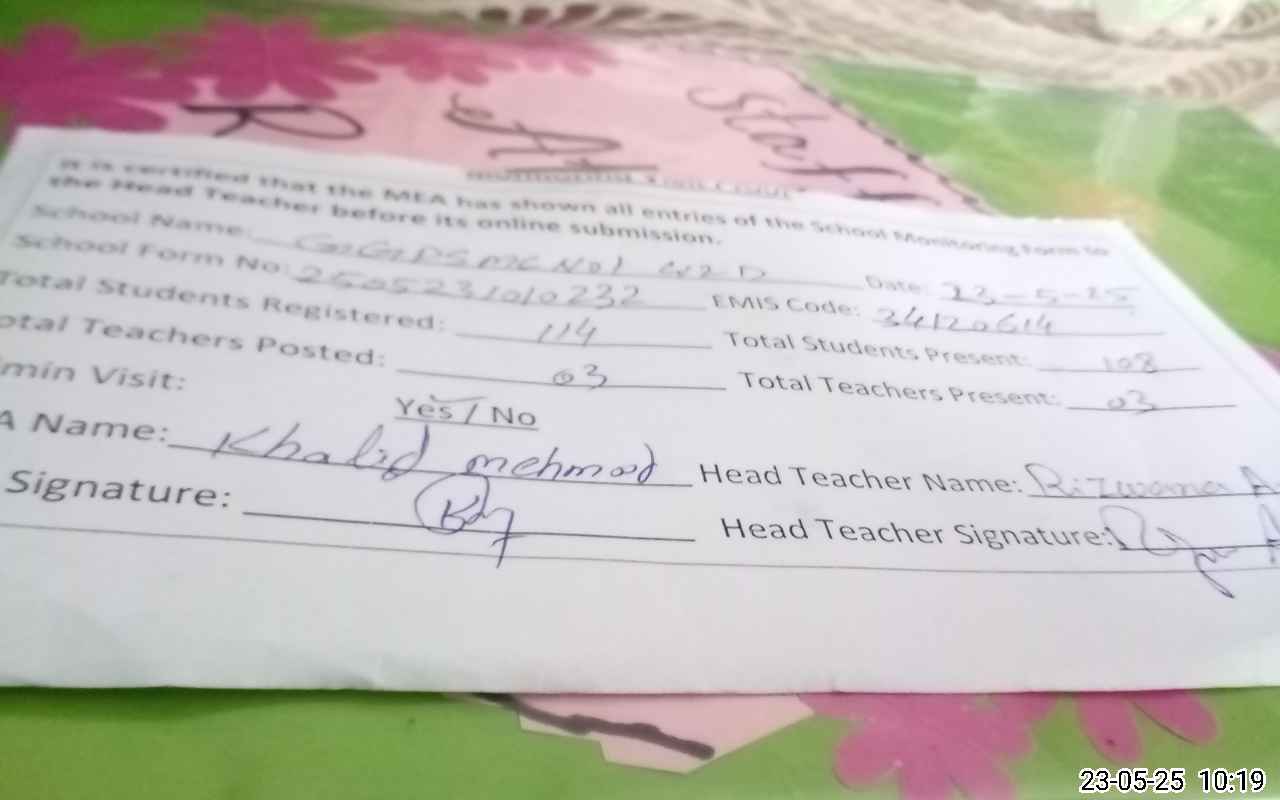 Staff
R
It is certified that the MEA has shown all entries of the School Monitoring Form to
the Head Teacher before its online submission.
School Name: GGPS MC No1 WZD Date: 23-5-25
School Form No: 2505231010232 EMIS Code: 34120614
Total Students Registered: 114 Total Students Present: 108
otal Teachers Posted: 03 Total Teachers Present: 03
min Visit: Yes / No
A Name: Khalid mehmood Head Teacher Name: Rizwana A
Signature: Head Teacher Signature:
23-05-25 10:19